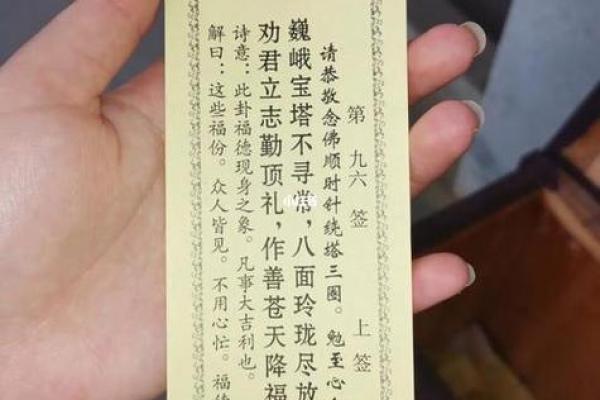 第九六签 上签
请恭敬念佛顺时针绕塔三圈。勉至心
巍峨宝塔不寻常，八面玲珑尽放
劝君立志勤顶礼，作善苍天降福
诗意：此卦福德现身之象。凡事大吉利也。
解曰：这些福份。众人皆见。不用心忙。福德